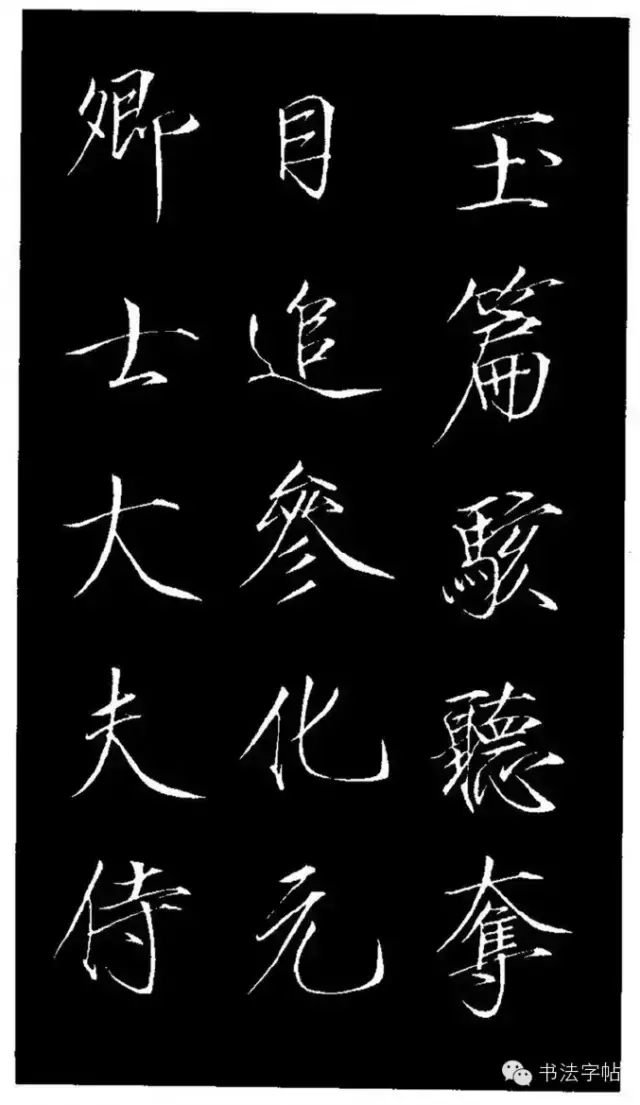 玉篇駭聽奪
目追參化元
卿士大夫侍
书法字帖